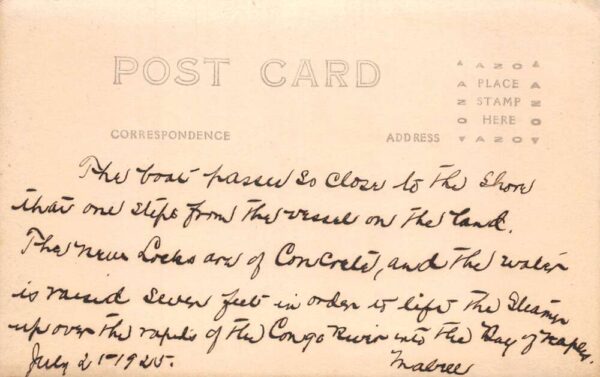 POST CARD
AZO
PLACE
STAMP
HERE
AZO
CORRESPONDENCE
ADDRESS
The boat passes so close to the shore
that one steps from the vessel on the land.
The new Locks are of Concrete, and the water
is raised seven feet in order to lift the Steamer
up over the rapids of the Congo River into the Bay of Naples.
July 21 1925.